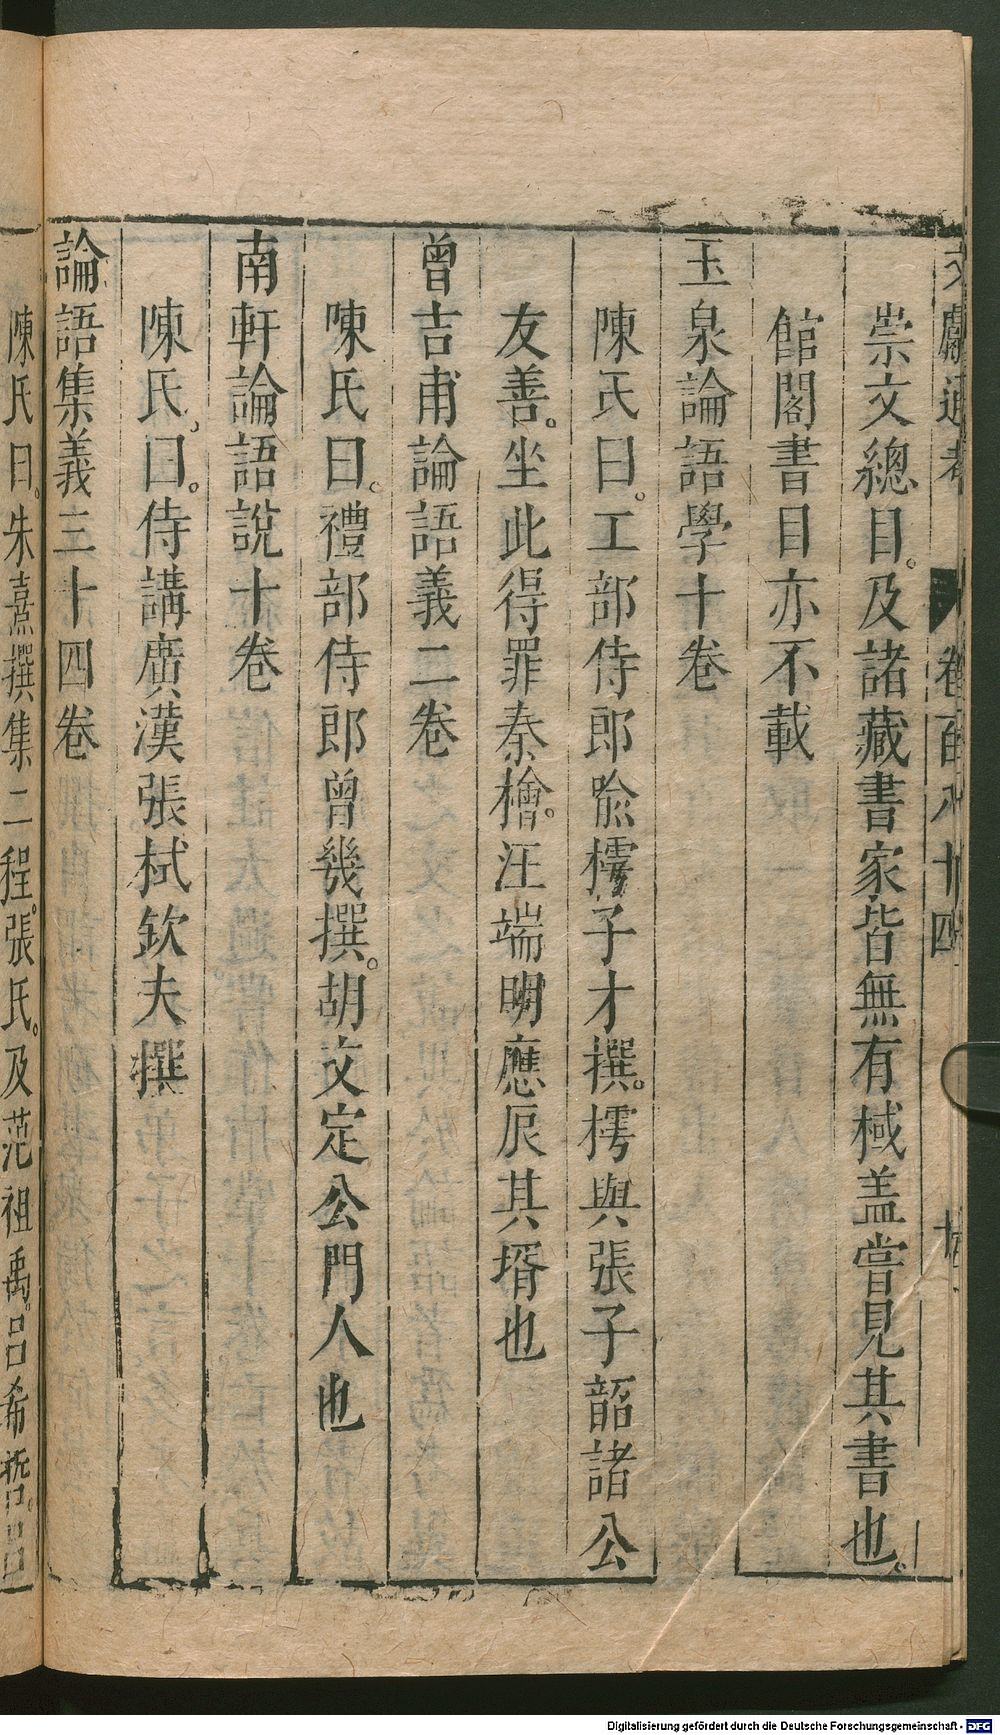 文獻通考 卷一百八十四
崇文總目。及諸藏書家皆無有棫盖嘗見其書也。
館閣書目亦不載
玉泉論語學十卷
陳氏曰。工部侍郎喻樗子才撰。樗與張子韶諸公
友善。坐此得罪秦檜。汪端明應辰其壻也
曾吉甫論語義二卷
陳氏曰。禮部侍郎曾幾撰。胡文定公門人也
南軒論語說十卷
陳氏曰。侍講廣漢張栻欽夫撰
論語集義三十四卷
陳氏曰。朱熹撰集二程。張氏。及范祖禹。呂希哲。呂
Digitalisierung gefördert durch die Deutsche Forschungsgemeinschaft - DFG